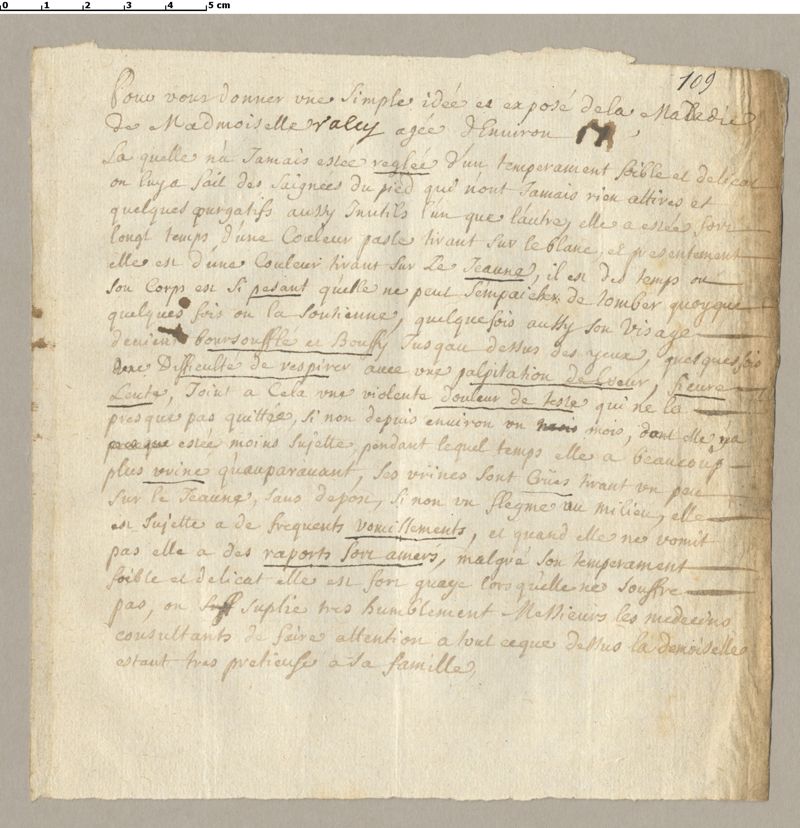 0 1 2 3 4 5 cm
109
Pour vous donner une simple idée et exposé de la Maladie
de Madmoiselle valcy agée d'Environ
La quelle n'a Jamais estée reglée d'un temperament foible et delicat
on luy a fait des saignées du pied qui n'ont Jamais rien attirés et
quelques purgatifs aussy Inutils l'un que l'autre, elle a estée fort
longt temps d'une Couleur pasle tirant sur le blanc, et presentement
elle est d'une Couleur tirant sur Le Jeaune, il est des temps ou
son Corps est si pesant qu'elle ne peut s'empaicher de tomber quoyque
quelques fois on la soutienne, quelquefois aussy son visage
devient boursoufflé et Bouffy Jusqau dessus des yeux, quelquesfois
une Difficulté de respirer avec une palpitation de Coeur, fievre
Lente, Joint a Cela une violente douleur de teste qui ne la
presque pas quittée, si non depuis environ un mois, dont elle n'a
estée moins sujette, pendant lequel temps elle a beaucoup
plus urine qu'auparavant, ses urines sont Cües tirant un peu
sur le Jeaune, sans depost, si non un flegme au milieu, elle
est sujette a de frequents vomissements, et quand elle ne vomit
pas elle a des raports fort amers, malgré son temperament
foible et delicat elle est fort guaye lorsqu'elle ne souffre
pas, on suplie tres humblement Messieurs les medecins
consultants de faire attention a tout ceque dessus la demoiselle
estant tres pretieuse a sa famille.